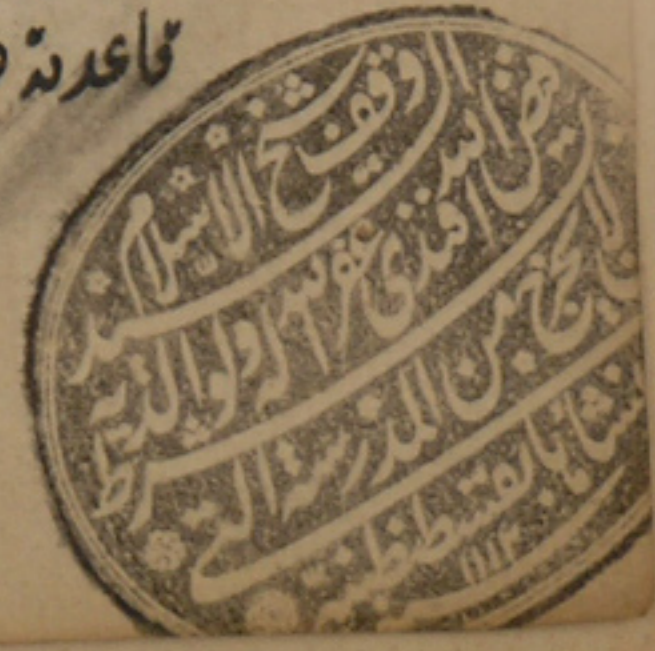 قاعدته
وقف شيخ الاسلام السيد
فيض الله افندى غفر الله له ولوالديه
بشرط ان لا يخرج من المدرسة التى
انشاها بقسطنطنية
١١١٣